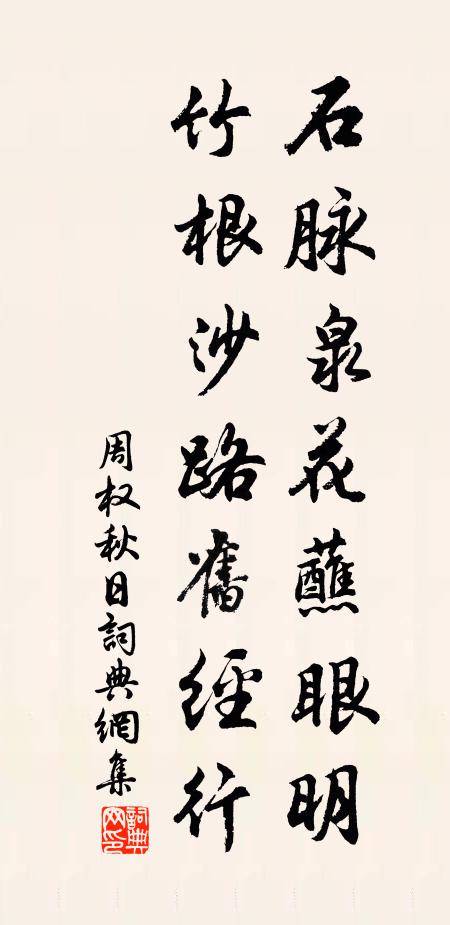 石脉泉花蘸眼明
竹根沙路舊經行
周权秋日詞典網集
詞典网印